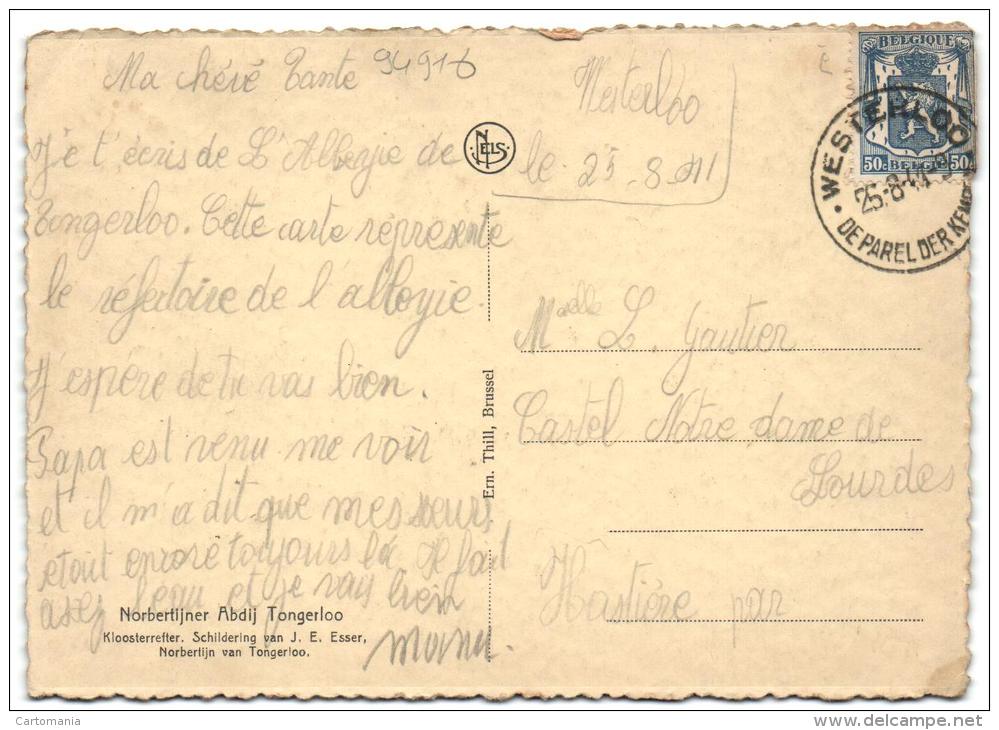 Ma chéré Tante
94916
Westerloo
le 25-8-41
J'e t'écris de L'Abbeyie de
Tongerloo. Cette carte représente
le réfectoire de l'abboyie.
J'espére de tu vas bien.
Papa est venu me voir
et il m'a dit que mes sœurs
étoit encore toujours là. Il fait
asez beau et je vais bien
Norbertijner Abdij Tongerloo
Kloosterrefter. Schildering van J. E. Esser,
Norbertijn van Tongerloo.
NELS
Ern. Thill, Brussel
BELGIQUE
50c BELGIE 50c
WESTERLOO
25-8-41
DE PAREL DER KEMP
Melle L. Gautier
Castel Notre dame de
Lourdes
Hastière par
Cartomania
www.delcampe.net